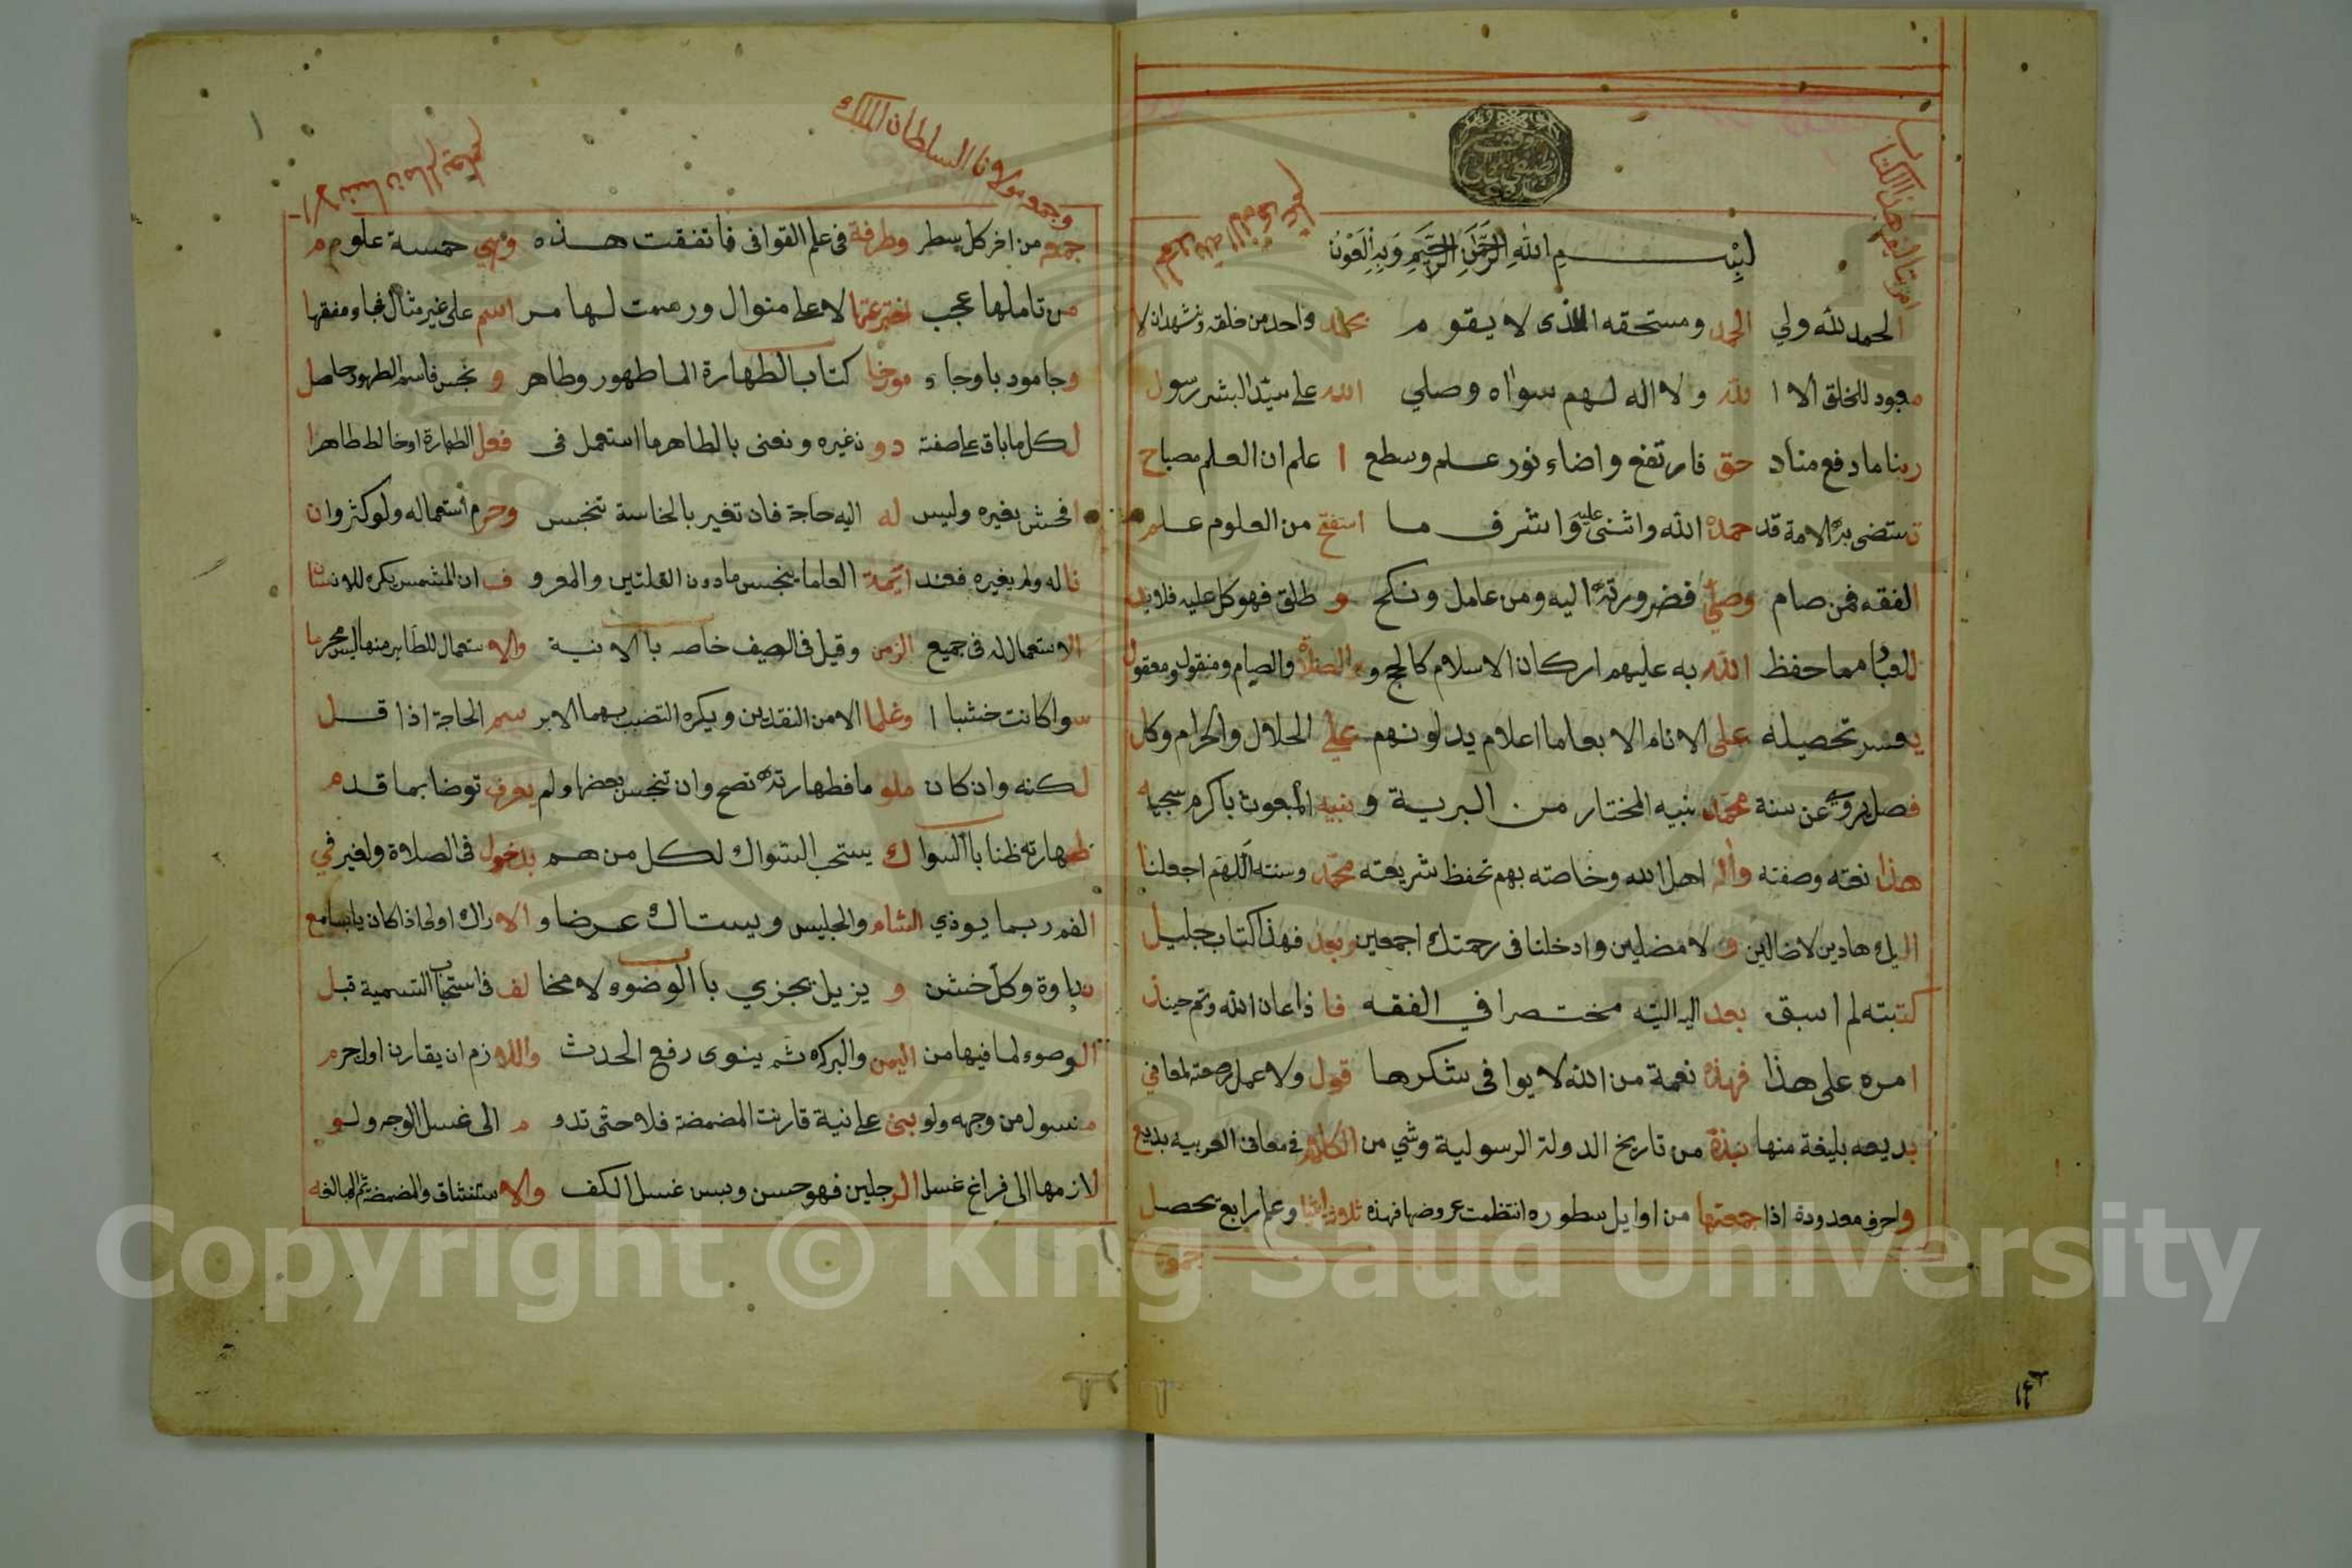 امر بتاليف هذا الكتاب
بِسْمِ اللهِ الرَّحْمَنِ الرَّحِيمِ وَبِهِ الْعَوْنُ
الحمد لله ولي الحمد ومستحقه الذى لا يقوم بحمده واحد من خلقه ونشهد ان لا
معبود للخلق الا الله ولا اله لهم سواه وصلي الله على سيد البشر رسول
ربنا ما دفع مناد حق فارتفع واضاء نور علم وسطع اعلم ان العلم مصباح
تستضى به الامة قد حمده الله واثنى عليه واشرف ما استفتح من العلوم علم
الفقه فمن صام وصلى فضرورته اليه ومن عامل ونكح و طلق فهو كل عليه فلا بد
للعباد مما حفظ الله به عليهم اركان الاسلام كالحج والصلاة والصيام ومنقول ومعقول
يعسر تحصيله على الانام الا بعلما اعلام يدلونهم على الحلال والحرام وكل
فصل يروى عن سنة محمد نبيه المختار من البرية و نبيه المبعوث باكرم سجيه
هذا نعته وصفته وآله اهل الله وخاصته بهم تحفظ شريعته محمد وسنته اللهم اجعلنا
اليك هادين لا ضالين و لا مضلين وادخلنا فى رحمتك اجمعين وبعد فهذا كتاب جليل
كتبته لم اسبق بعد اليه اليته مختصرا في الفقه فا ذا اعان الله وتم حينذ
امره على هذا فهذه نعمة من الله لا يوا فى شكرها قول ولا عمل لمعاني
بديعه بليغة منها نبذة من تاريخ الدولة الرسولية وشي من الكلام في معانى العربيه بديع
واحرف معدودة اذا جمعتها من اوايل سطوره انتظمت عروضها فهذه ثلاثة اشيا وعلم رابع تحصل
جمو
وجمع مولانا السلطان الملك
الانسان مالم يعلم
جمع من اخر كل سطر وطرفة فى علم القوافى فاتفقت هذه وهي خمسة علوم
من تاملها عجب اخترعتها لا على منوال ورسمت لها من اسم على غير مثال فجا ومفقها
كتاب الطهارة الما طهور وطاهر و نجس فاسم الطهور حاصل
لكل ما باق على صفته دون غيره ونعنى بالطاهر ما استعمل فى فعل الطهارة او خالط طاهرا
افحش بغيره وليس له اليه حاجة فان تغير بالنجاسة تنجس وحرم استعماله ولو كثر وان
ناله ولم يغيره فعند ائمة العلما ينجس ما دون القلتين والمعروف ان المشمس يكره للانسان
الاستعمال له فى جميع الزمن وقيل فى الصيف خاصه باب الانية والاستعمال للطاهر منها ليس محرما
سوا كانت خشبا ا وغلما الا من النقدين ويكره التضبيب بهما الا برسم الحاجة اذا قل
لكنه وان كان ملوما فطهارته تصح وان تنجس بعضها ولم يعرف توضا بما قدم
طهارته ظنا باب السواك يستحب السواك لكل من هم بدخول فى الصلاة ولغير في
الفم ربما يوذي الشام والجليس ويستاك عرضا و الاراك اولى اذا كان يابسا مع
نداوة وكل خشن و يزيل يجزي باب الوضوء لا مخالف فى استحباب التسمية قبل
الوضوء لما فيها من اليمن والبركه ثم ينوى رفع الحدث واللازم ان يقارن اول جرم
مغسول من وجهه ولو بنى على نية قارنت المضمضة فلا حتى تدوم الى غسل الوجه ولو
لازمها الى فراغ غسل الرجلين فهو حسن ويسن غسل الكف والاستنشاق والمضمضة ثم المبالغه
Copyright © King Saud University